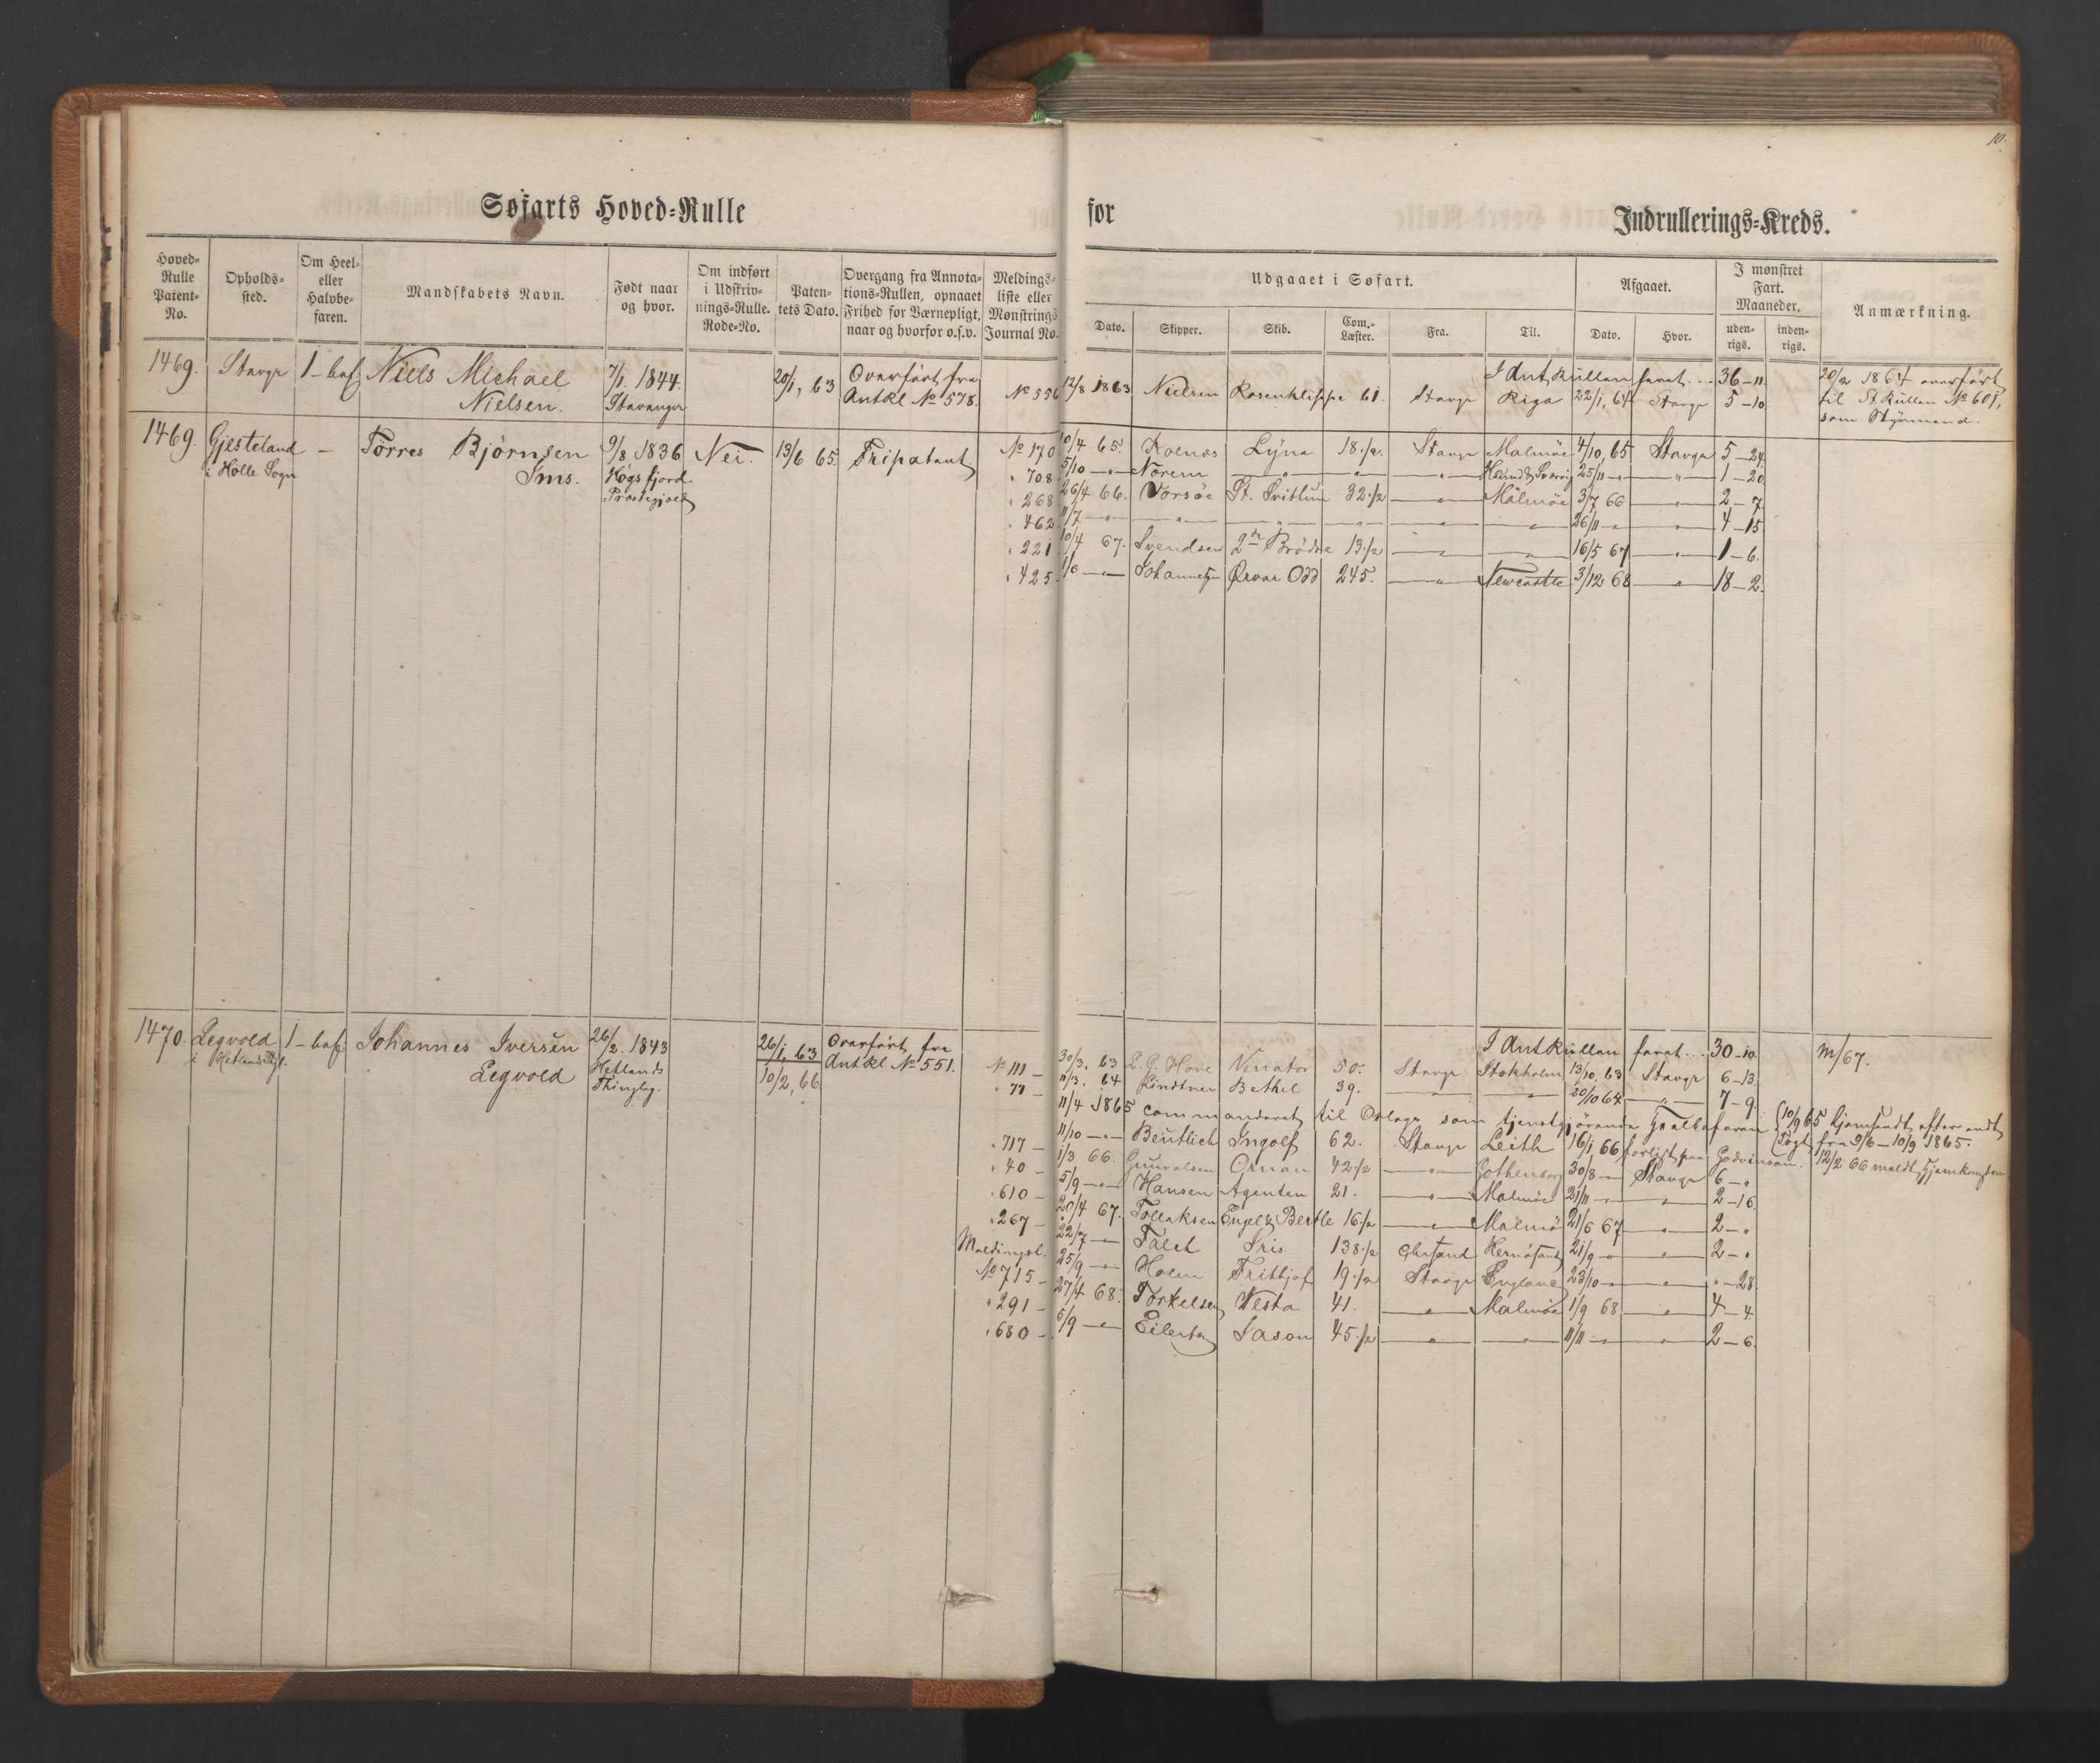 10.
Søfarts Hoved-Rulle for Indrullerings-Kreds.
Hoved-Rulle Patent-No.
Opholds-sted.
Om Heel- eller Halvbe-faren.
Mandskabets Navn.
Født naar og hvor.
Om indført i Udskriv-nings-Rulle. Rode-No.
Paten-tets Dato.
Overgang fra Annota-tions-Rullen, opnaaet Frihed for Værnepligt, naar og hvorfor o.s.v.
Meldings-liste eller Mønstrings Journal No.
Udgaaet i Søfart.
Dato. Skipper. Skib. Com.-Læster. Fra. Til.
Afgaaet.
Dato. Hvor.
I mønstret Fart. Maaneder.
uden-rigs. inden-rigs.
Anmærkning.
1469. Stavgr 1-bef. Niels Michael 7/1. 1844. 20/1, 63 Overført fra I Antrullen faret... 36-11. 20/2 1864 overført
Nielsen. Stavanger Antrl No 578. No 556 12/8 1863 Nielsen Rosenklippe 61. Stavgr Riga 22/1, 64 Stavgr 5-10 til St. Rullen No 601,
som Styrmand.
1469 Gjesteland - Torres Bjørnsen 9/8 1836 Nei. 13/6 65. Fripatent No 170 10/4 65. Kolnos Lyna 18.1/2. Stavgr Malmöe 4/10, 65 Stavgr 5-24.
i Holle Sogn Ims. Høgsfjord " 708 5/10 -"- Norem -"- -"- -"- 25/11 -"- -"- 1-20
Præstegjæld " 268 26/4 66. Vorsöe St. Svithun 32.1/2 -"- Malmöe 3/7 66 -"- 2-7.
" 462 11/7 -"- -"- -"- -"- -"- -"- 26/11 -"- -"- 4-15
" 221 10/4 67. Svendsen 2de Brödre 13.1/2 -"- -"- 16/5 67 -"- 1-6.
" 425. 1/6 -"- Johannesen Ørvar Odd 245. -"- Newcastle 3/12 68 -"- 18-2.
1470. Legvold 1-bef. Johannes Iversen 26/2. 1843 26/1, 63 Overført fra I Antrullen faret... 30-10. m/67.
i Hetlands Thgl. Legvold Hetlands Thinglg. 10/2, 66 Antrl No 551. No 111 - 30/3, 63 L. G. Hove Venator 50. Stavgr Stokholm 13/10, 63 Stavgr 6-13.
" 77 - 11/3. 64 Lindtner Bethel 39. -"- -"- 20/10 64 -"- 7-9.
11/4 1865 commanderet til Orlogs som tjenstgjørende 10/9 65 hjemsendt efter endt
Togt fra 9/6-10/9 1865.
" 717 - 11/10 -"- Bentlich Ingolf 62. Stavgr Leith 16/1, 66 forlist paa 12/2 66 meldt Hjemkomsten
" 40 - 1/3 66. Gunvalsen Ornan 42.1/2 -"- Gothenborg 30/8 -"- Stavgr 6-"
" 610 - 5/9 -"- Hansen Agenten 21. -"- Malmöe 21/11 -"- -"- 2-16.
" 267 - 20/4 67. Tollaksen Engelz Bertle 16.1/2 -"- Malmö 21/6 67 -"- 2-"
Meldingsl. 22/7 -"- Falch Iris 138.1/2 Chrsand Hernøsand 21/9 -"- -"- 2-"
No 715 - 25/9 -"- Holm Frithjof 19.1/2 Stavgr England 23/10 -"- -"- "-28
" 291 - 27/4 68. Torkelsen Vesta 41. -"- Malmöe 1/9 68 -"- 4-4
" 680 - 6/9 -"- Eilertsen Jason 45.1/2 -"- -"- 11/11 -"- -"- 2-6.